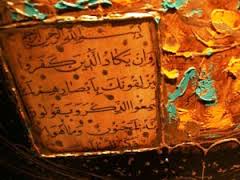 بسم الله الرحمن الرحيم
وان يكاد الذين كفروا
ليزلقونك بابصارهم
سمعوا الذكر ويقولون
لمجنون وما هو